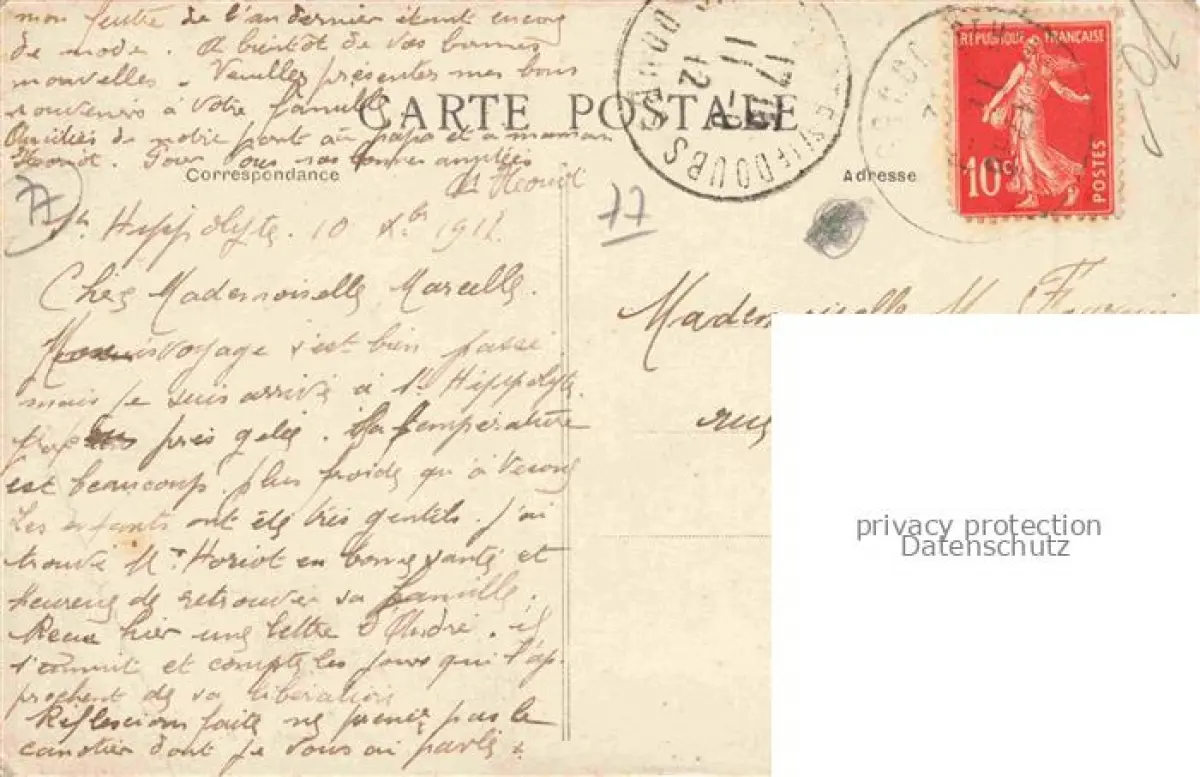 mon feutre de l'an dernier étant encore
de mode. A bientôt de vos bonnes
nouvelles. Veuillez présenter mes bons
souvenirs à votre famille
Amitiés de notre part au papa et a maman
Pour vous nos bonnes amitiés
L Horiot
CARTE POSTALE
Correspondance
Adresse
RÉPUBLIQUE FRANÇAISE
10c
POSTES
DOUBS
77
77
St Hippolyte. 10 Xbr 1911
Chère Mademoiselle Marcelle.
voyage s'est bien passé
mais je suis arrivé à St Hippolyte
près gelée. La température
est beaucoup plus froide qu'à
Les enfants ont été très gentils. J'ai
trouvé Mr Horiot en bonne santé et
heureux de retrouver sa famille.
Reçu hier une lettre d'André. il
s'ennuit et compte les jours qui l'ap-
prochent de sa libération
Reflescions faite ne prenez pas le
canotier dont je vous ai parlé
Mademoiselle M.
rue
privacy protection
Datenschutz